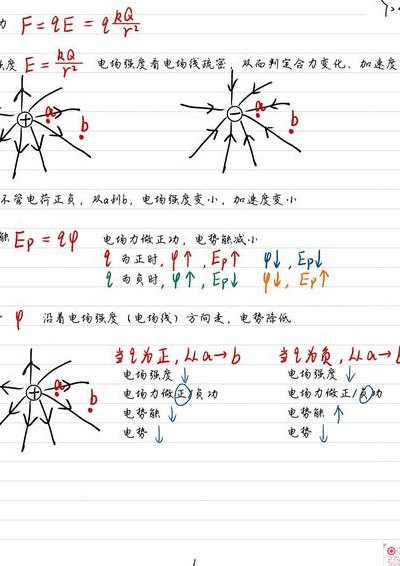 力 F = qE = q kQ/r²
强度 E = kQ/r² 电场强度看电场线疏密，从而判定合力变化、加速度
+ a b
− a b
不管电荷正负，从a到b，电场强度变小，加速度变小
能 Ep = qφ 电场力做正功，电势能减小
q 为正时，φ↑，Ep↑ φ↓，Ep↓
q 为负时，φ↑，Ep↓ φ↓，Ep↑
φ 沿着电场强度（电场线）方向走，电势降低
当q为正，从a→b 当q为负，从a→b
+ a b
电场强度↓ 电场强度↓
电场力做正/负功 电场力做正/负功
电势能↓ 电势能↑
电势↓ 电势↓
1